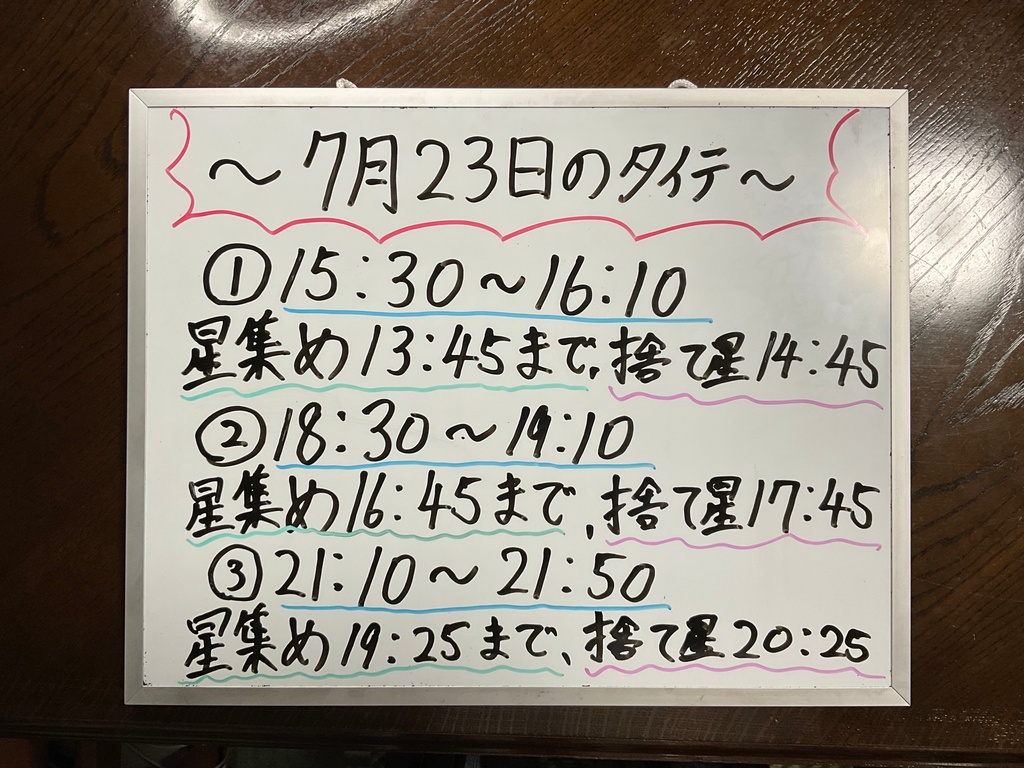 ～7月23日のタイテ～
①15:30～16:10
星集め13:45まで、捨て星14:45
②18:30～19:10
星集め16:45まで、捨て星17:45
③21:10～21:50
星集め19:25まで、捨て星20:25